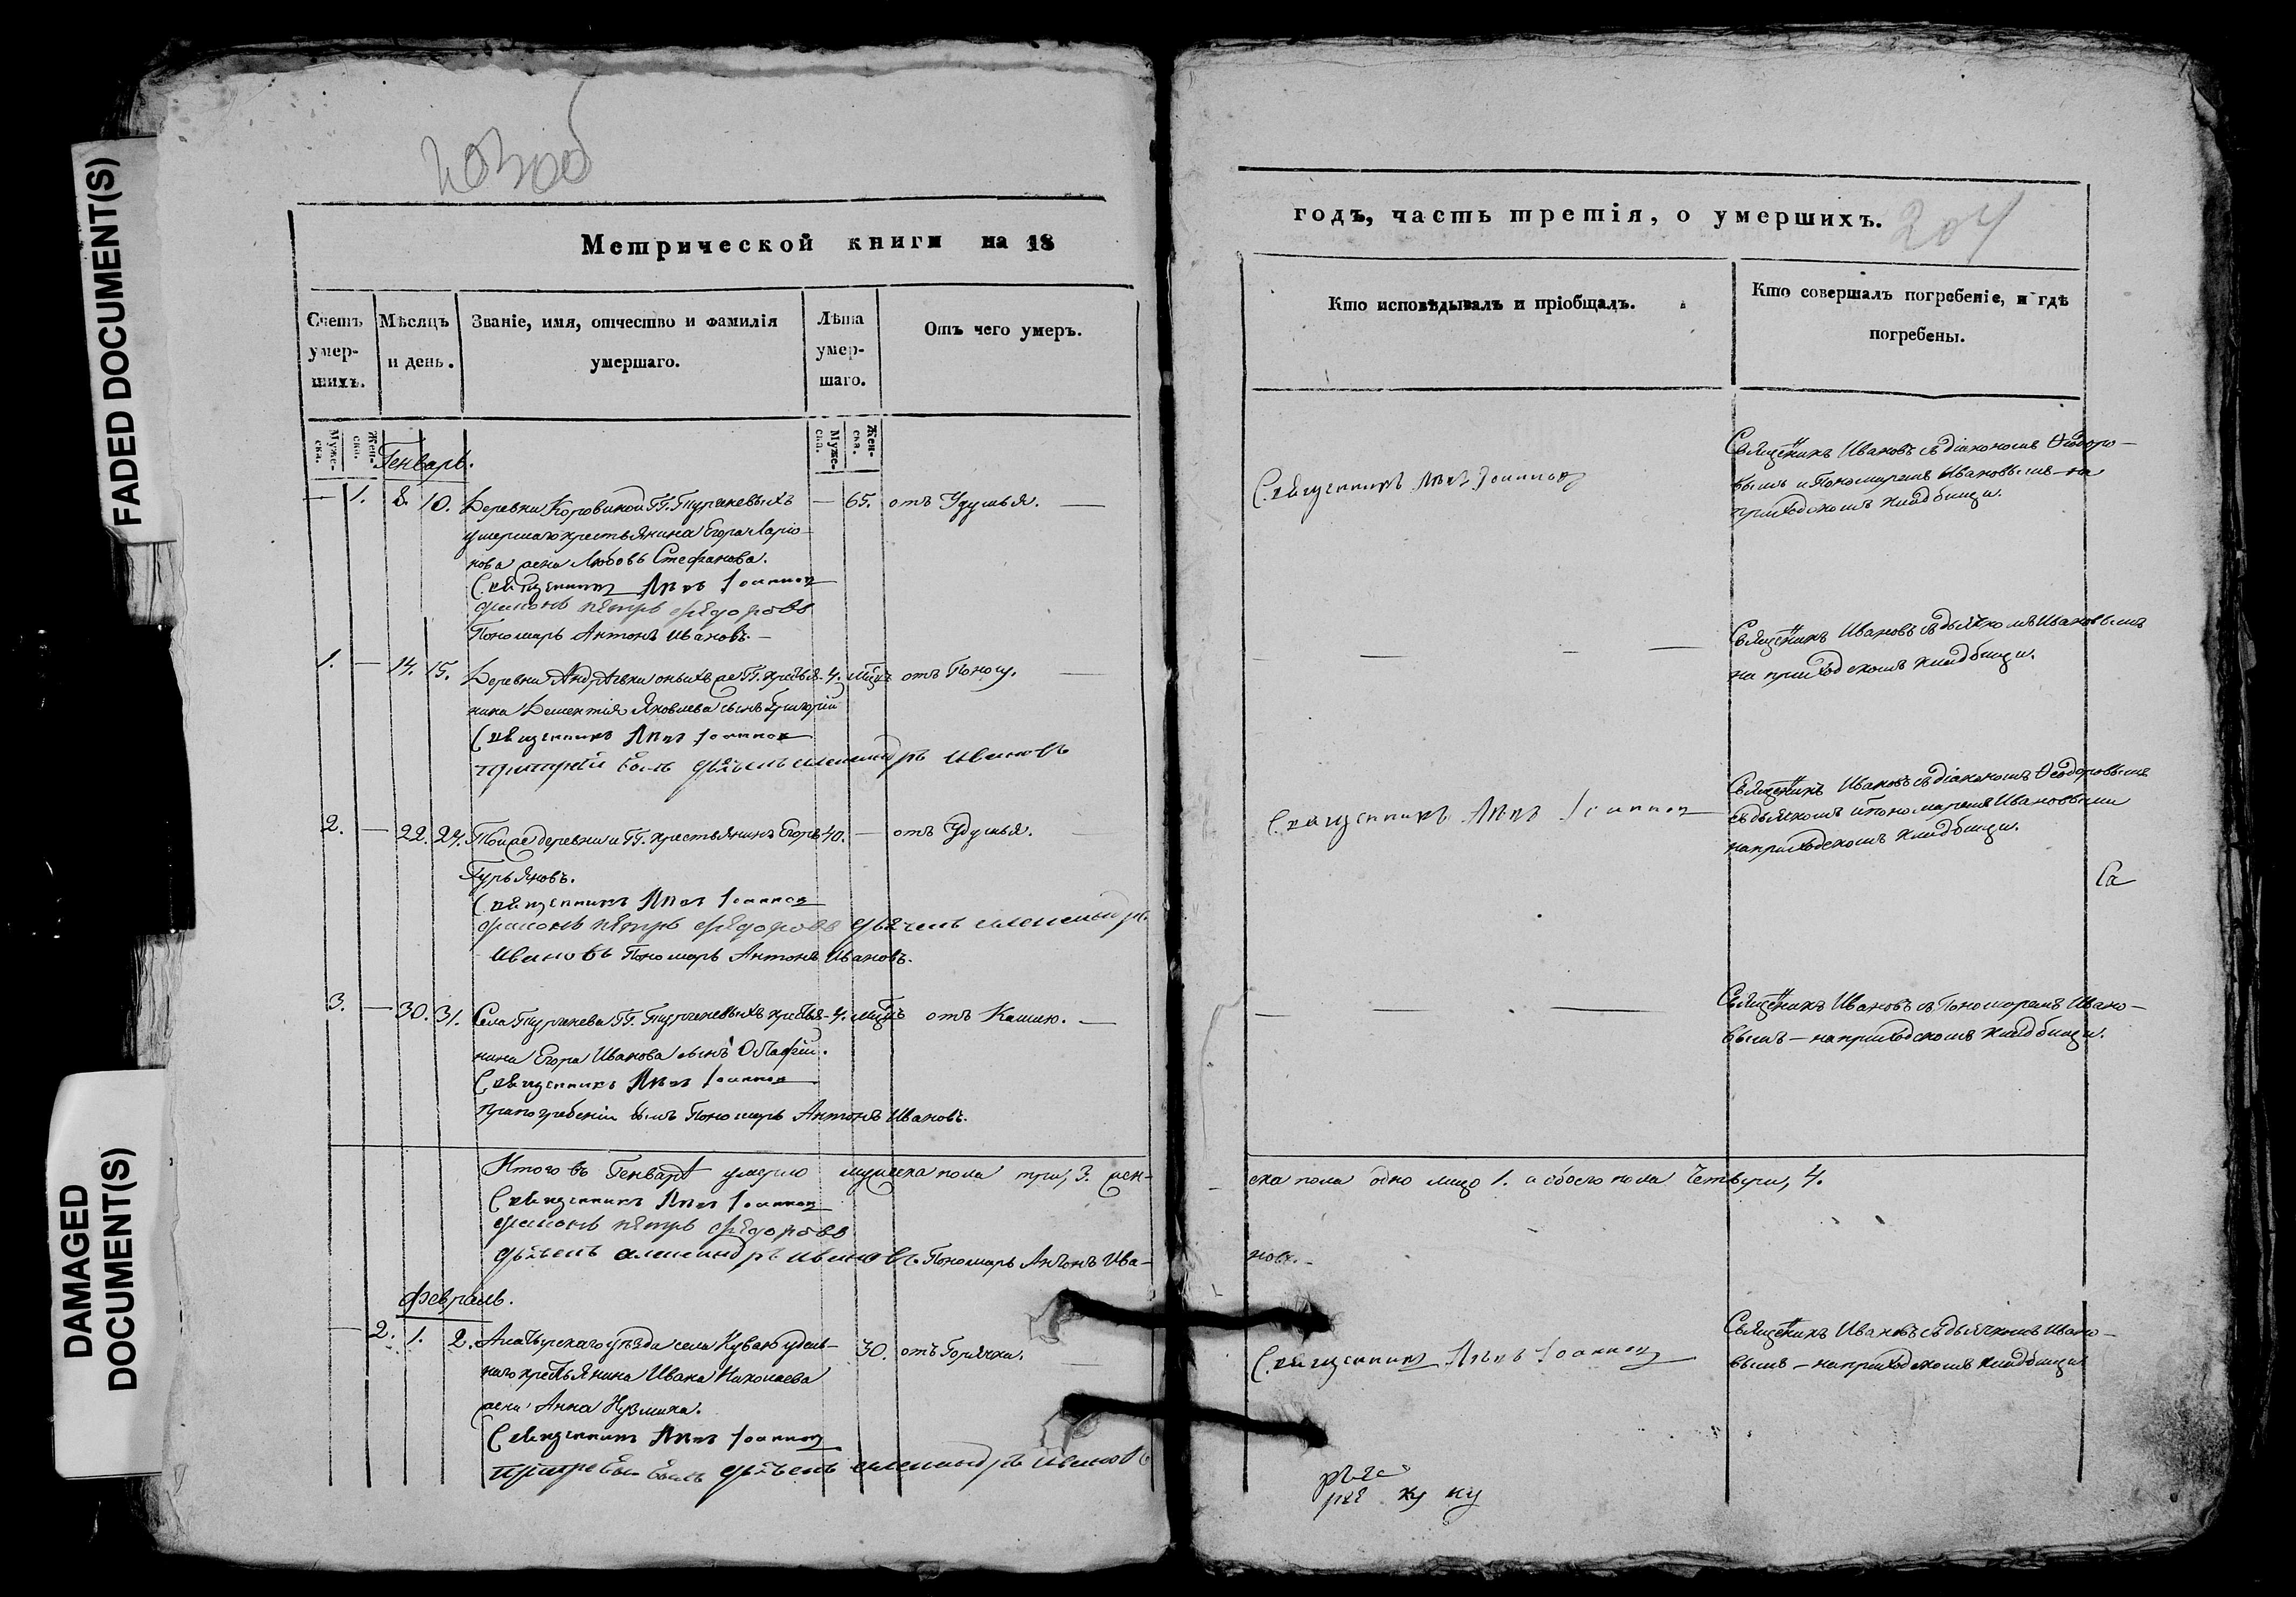 FADED DOCUMENT(S)
DAMAGED
DOCUMENT(S)
Метрической книги на 18
Счетъ умер-шихъ.
Мѣсяцъ и день.
Званіе, имя, отчество и фамилія умершаго.
Лѣта умер-шаго.
Отъ чего умеръ.
Муже-ска.
Жен-ска.
Муже-ска.
Жен-ска.
Генварь.
— 1. 8. 10. Деревни Коровиной ГГ. Тургеневыхъ — 65. отъ Удушья. —
умершаго крестьянина Егора Ларіо-
нова жена Любовь Стефанова.
Священникъ Іоаннов
діаконъ пѣтръ фѣдоровъ
Пономарь Антонъ Ивановъ. —
1. — 14. 15. Деревни Андрѣевки оныхъ же ГГ. кресть- 4. мцъ отъ Поносу. —
нина Дементія Яковлева сынъ Григорій
Священникъ Іоаннов
былъ дьячекъ александръ ивановъ
2. — 22. 24. Той же деревни и ГГ. крестьянинъ Егоръ 40. — отъ Удушья. —
Гурьяновъ.
Священникъ Іоаннов
діаконъ пѣтръ фѣдоровъ дьячекъ александръ
ивановъ Пономарь Антонъ Ивановъ.
3. — 30. 31. Села Тургенева ГГ. Тургеневыхъ крестья- 4. мцъ отъ Кашлю. —
нина Егора Иванова сынъ
Священникъ Іоаннов
при погребеніи былъ Пономарь Антонъ Ивановъ.
Итого въ Генварѣ умерло мужеска пола три, 3. жен-
Священникъ Іоаннов
діаконъ пѣтръ фѣдоровъ
дьячекъ александръ ивановъ Пономарь Антонъ Ива-
Февраль.
— 2. 1. 2. Алатырскаго уѣзда села Кувая удѣль- 30. отъ Горячки. —
наго крестьянина Ивана Николаева
жена Анна Кузмина.
Священникъ Іоаннов
былъ дьячекъ александръ ивановъ
годъ, часть третія, о умершихъ.
204
Кто исповѣдывалъ и пріобщалъ.
Кто совершалъ погребеніе, и гдѣ погребены.
Священникъ Іоаннов
Священникъ Ивановъ съ діакономъ Ѳеодоро-
вымъ и Пономаремъ Ивановымъ на
приходскомъ кладбищи.
— — —
Священникъ Ивановъ съ дьячкомъ Ивановымъ
на приходскомъ кладбищи.
Священникъ Іоаннов
Священникъ Ивановъ съ діакономъ Ѳеодоровымъ
съ дьячкомъ и пономаремъ Ивановыми
на приходскомъ кладбищи.
— — —
Священникъ Ивановъ съ Пономоремъ Ивано-
вымъ — на приходскомъ кладбищи.
ска пола одно лицо 1. а обоего пола Четверы, 4.
новъ. —
Священникъ Іоаннов
Священникъ Ивановъ съ дьячкомъ Ивано-
вымъ — на приходскомъ кладбищи